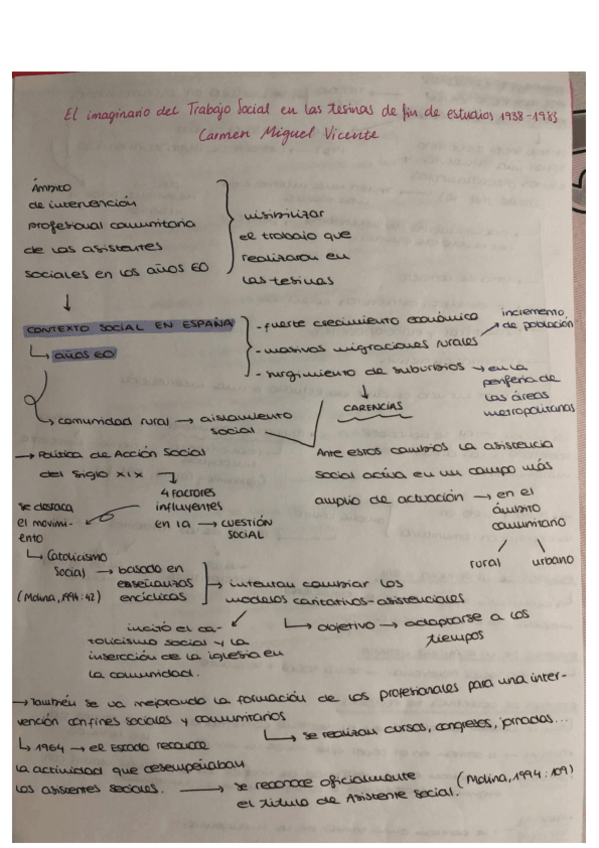 El imaginario del Trabajo Social en las tesinas de fin de estudios 1938-1983
Carmen Miguel Vicente
Ámbito
de intervención
profesional comunitaria
de los asistentes
sociales en los años 60
visibilizar
el trabajo que
realizaron en
las tesinas
↓
CONTEXTO SOCIAL EN ESPAÑA
↳ años 60
- fuerte crecimiento económico
- masivas migraciones rurales
incremento
de población
- surgimiento de suburbios → en la
periferia de
las áreas
metropolitanas
CARENCIAS
comunidad rural → aislamiento
social
→ Política de Acción Social
del siglo XIX
4 factores
influyentes
en la → CUESTIÓN
SOCIAL
se destaca
el movimi-
ento
↳ Catolicismo
Social → basado en
enseñanzas
encíclicas
(Molina, 1994:42)
→ intentan cambiar los
modelos caritativos-asistenciales
↳ objetivo → adaptarse a los
tiempos
incitó el ca-
tolicismo social y la
inserción de la iglesia en
la comunidad.
Ante estos cambios la asistencia
social activa en un campo más
amplio de actuación → en el
ámbito
comunitario
rural
urbano
→ También se va mejorando la formación de los profesionales para una inter-
vención con fines sociales y comunitarios
↳ se realizan cursos, congresos, jornadas...
↳ 1964 → el estado reconoce
la actividad que desempeñaban
los asistentes sociales. → se reconoce oficialmente
el título de Asistente Social.
(Molina, 1994:109)